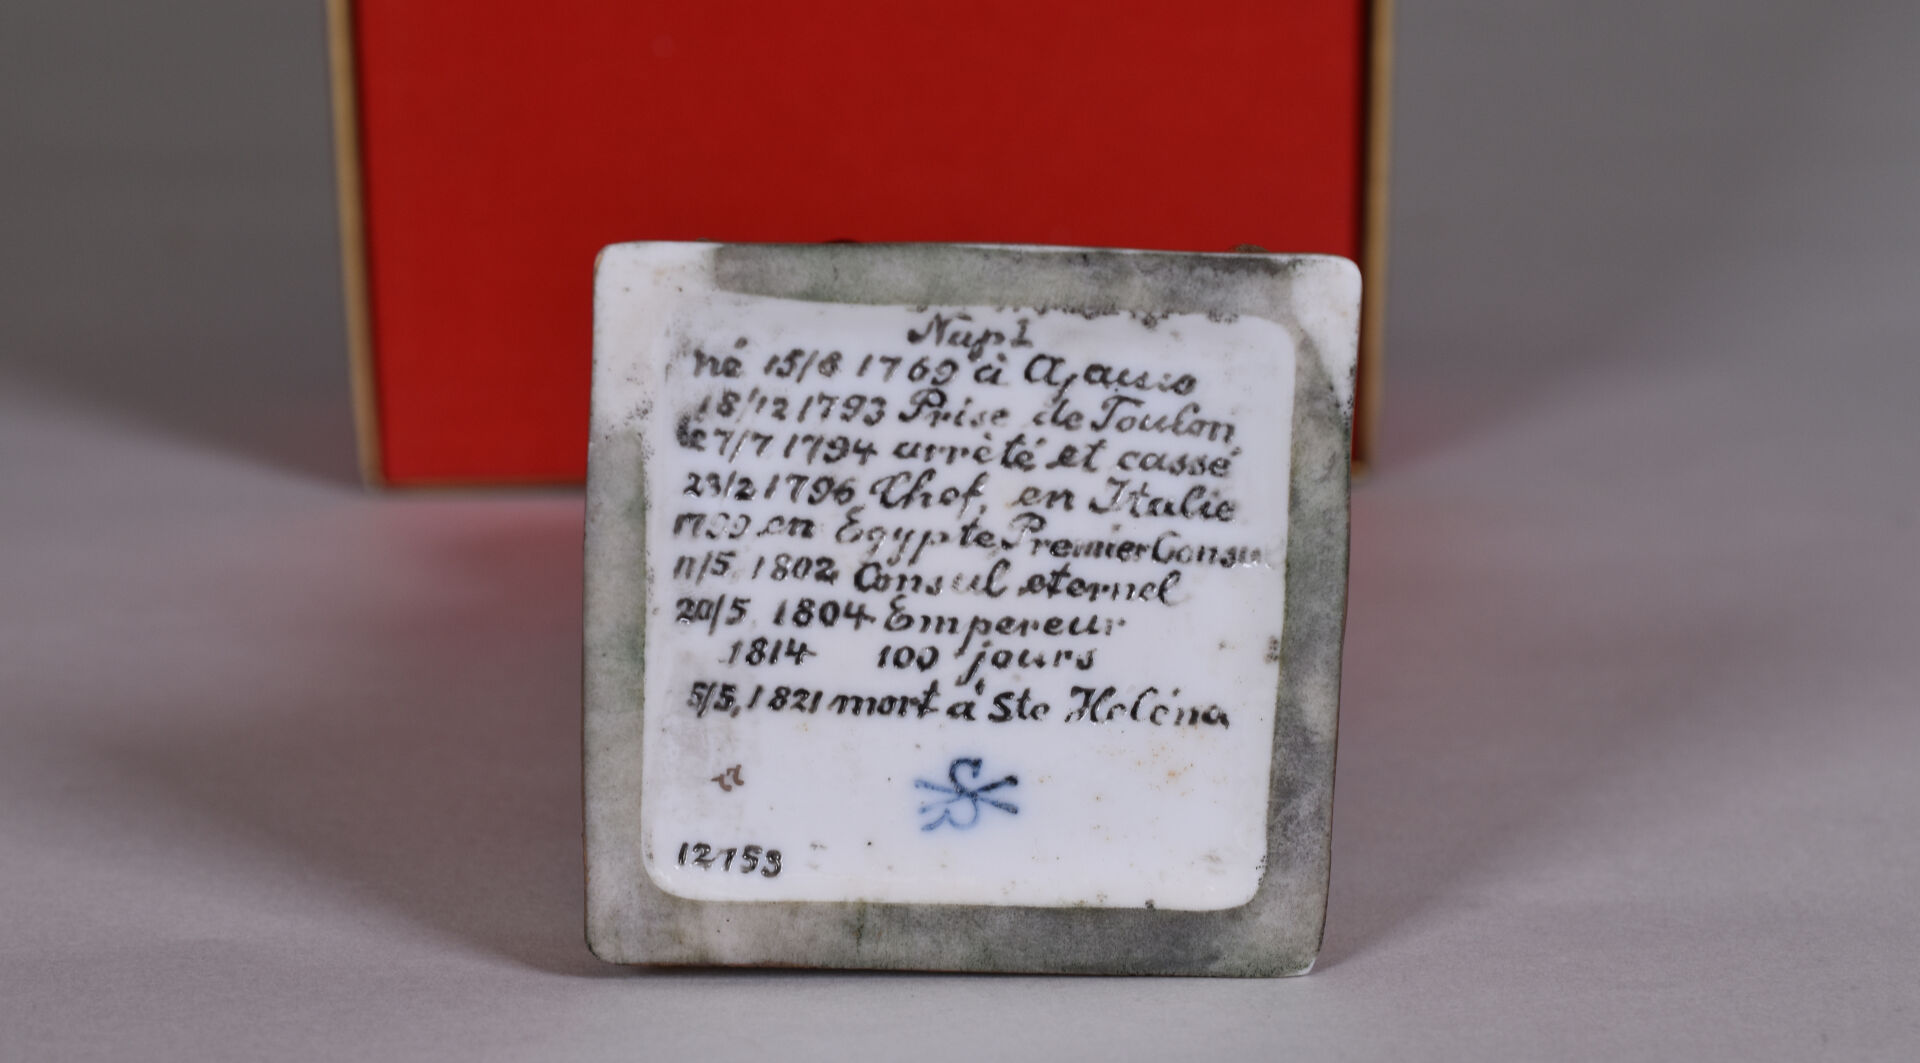 Nap I
né 15/8 1769 à Ajaccio
18/12 1793 Prise de Toulon
27/7 1794 arrèté et cassé
23/2 1796 Chef, en Italie
1799 en Egypte, Premier Consul
11/5, 1802 Consul eternel
20/5, 1804 Empereur
1814 100 jours
5/5, 1821 mort à Ste Heléna
S
12753